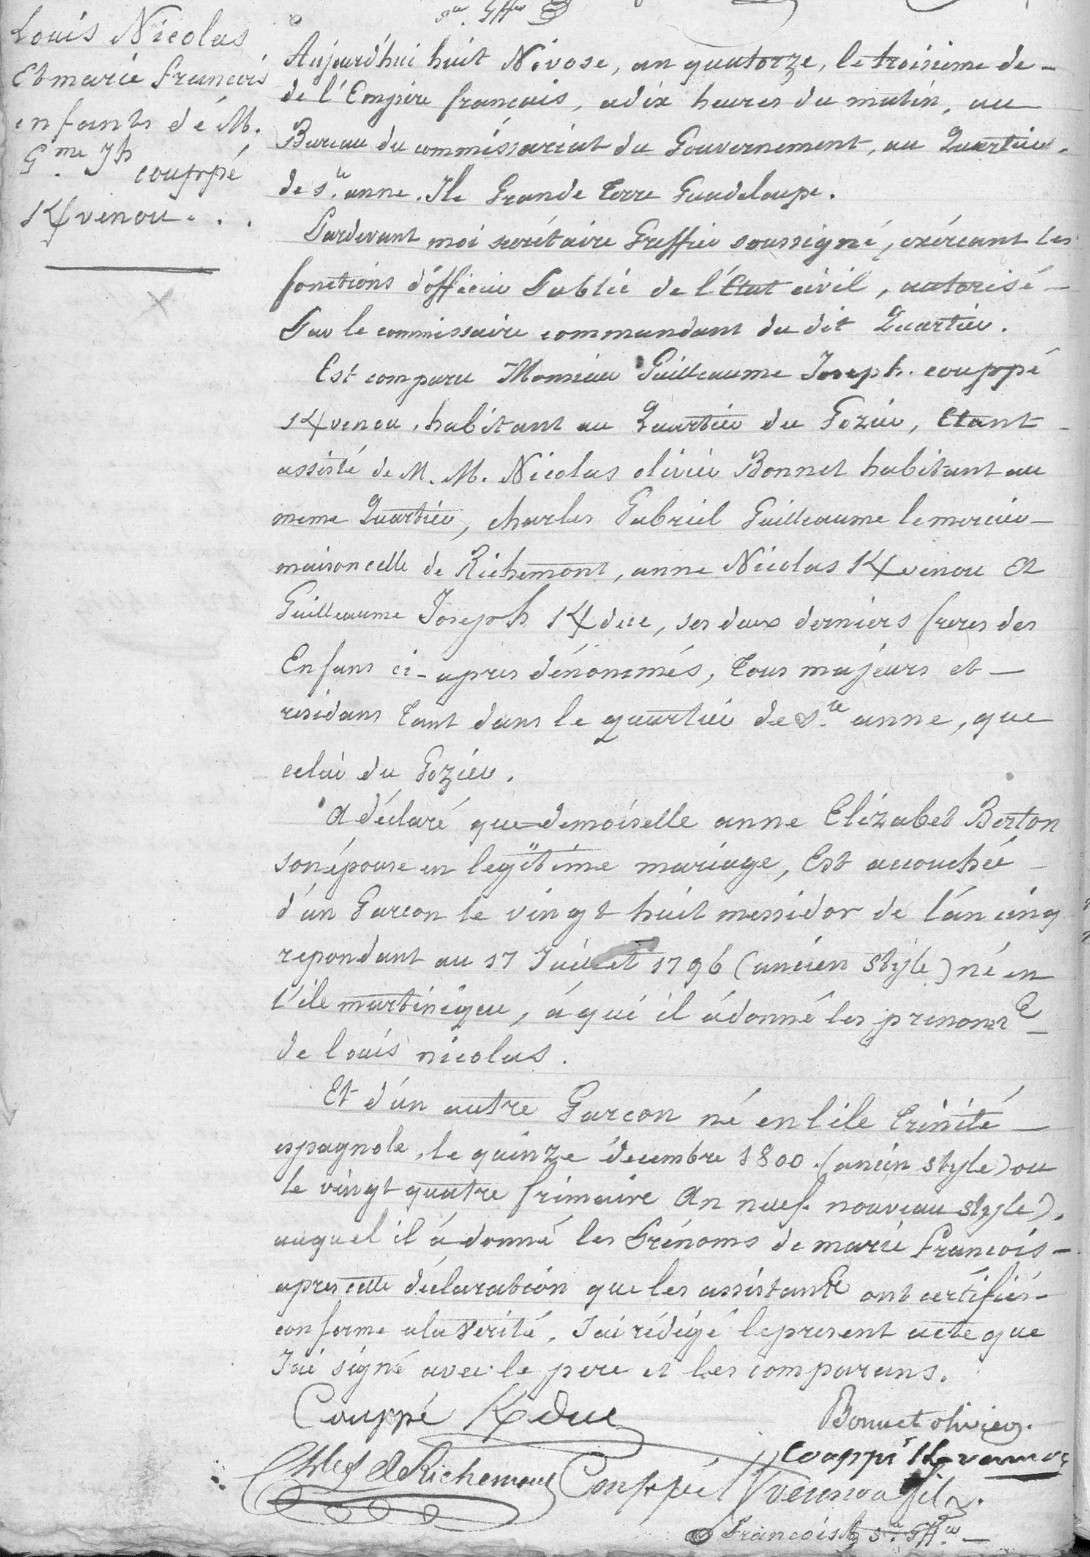 Louis Nicolas
Et marie francois
enfants dé M.
Gme Jh couppé
K/venou . . .
Aujourd'hui huit Nivose, an quatorze, le troisieme de -
de l'Empire francais, a dix heures du matin, au
Bureau du commissariat du Gouvernement, au Quartier
de Ste anne. Ile Grande Terre Guadeloupe.
Pardevant moi secrétaire Greffier soussigné, exércant les
fonctions d'officier Public de l'Etat civil, autorisé -
Par le commissaire commandant du dit Quartier.
Est comparu Monsieur Guilleaume Joseph couppé
K/venou, habitant au Quartier du Gozier, Etant -
assisté de M. M. Nicolas olivier Bonnet habitant au
meme Quartier, charles Gabriel Guilleaume lemercier -
maisoncelle de Richemont, anne Nicolas K/venou Et
Guilleaume Joseph K/duc, ses deux derniers freres des
Enfans ci-apres dénonmés, Tous majeurs et -
residans Tant dans le quartier de Ste anne, que
celui du Gozier.
A déclaré que demoiselle anne Elizabet Berton
son épouse en legitime mariage, Est accouchée
d'un Garcon le vingt huit messidor de l'an cinq
repondant au 17 Juillet 1796 (ancien style) né en
l'ile martinique, á qui il á donné les prenoms
de louis nicolas.
Et d'un autre Garcon né en l'ile Trinité -
espagnole, le quinze décembre 1800. (ancien style) ou
le vingt quatre frimaire An neuf nouveau style),
auquel il á donné les Prénoms de marie francois -
apres cette déclaration que les assistants ont certifiés
conforme a la vérité, J'ai rédigé le present acte que
J'ai signé avec le pere et les comparans.
Couppé K/duc
Bonnet olivier.
Couppé K/venou
Chles de Richemont
Couppé K/venou fils.